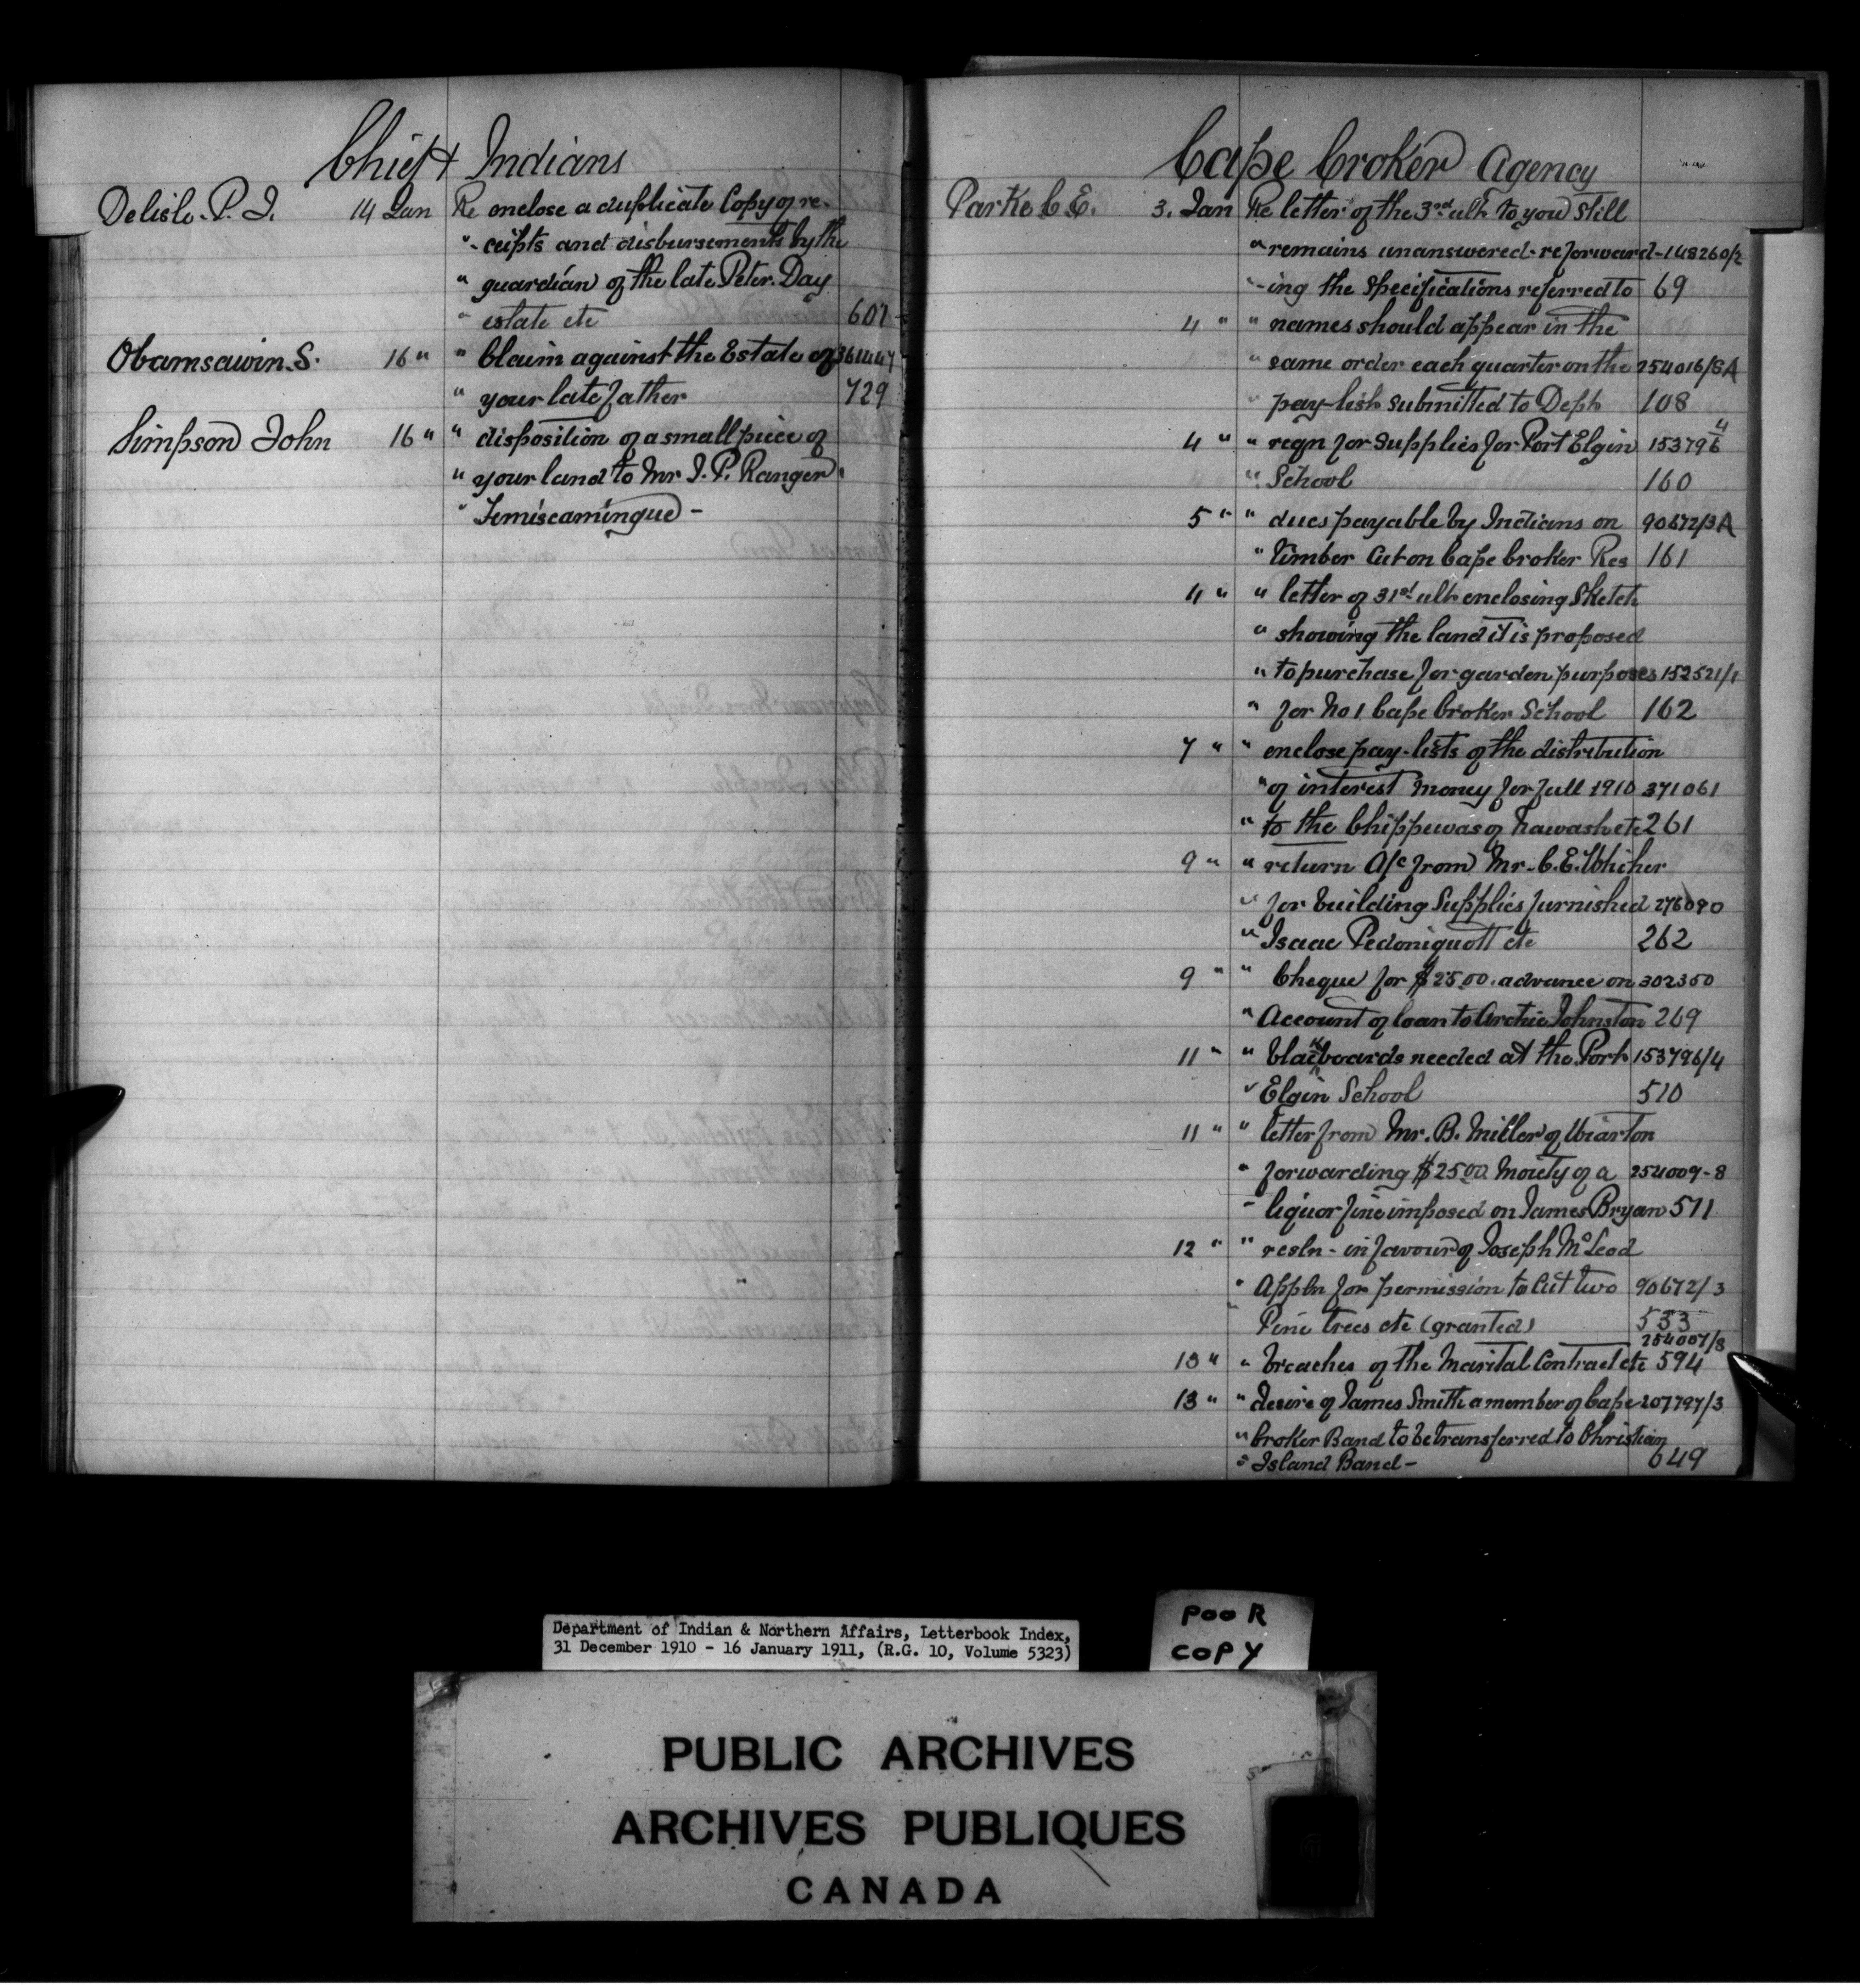 Chief & Indians
Delisle. P. J. 14 Jan Re enclose a duplicate Copy of re-
"- ceipts and disbursements by the
" guardian of the late Peter Day
" estate etc 607
Obamsawin. S. 16 " " Claim against the Estate of 361447
" your late father 729
Simpson John 16 " " disposition of a small piece of
" your land to Mr J. P. Ranger
" Temiscamingue -
Cape Croker Agency
Parke C E. 3. Jan Re letter of the 3rd ult. to you still
" remains unanswered. re forward- 148260/2
"-ing the specifications referred to 69
4 " " names should appear in the
" same order each quarter on the 254016/8A
" pay-list submitted to Dept 108
4 " " reqn for supplies for Port Elgin 153796/4
" School 160
5 " " dues payable by Indians on 90672/3A
" Timber cut on Cape Croker Res 161
4 " " letter of 31st ult. enclosing Sketch
" showing the land it is proposed
" to purchase for garden purposes 152521/1
" for No 1 Cape Croker School 162
7 " " enclose pay-lists of the distribution
" of interest money for fall 1910 371061
" to the Chippewas of Nawash etc 261
9 " " return A/c from Mr. C. E. Whicher
" for building Supplies furnished 276090
" Isaac Pedoniquott etc 262
9 " " Cheque for $25.00. advance on 302350
" Account of loan to Archie Johnston 269
11 " " blackboards needed at the Port 153796/4
" Elgin School 510
11 " " letter from Mr. B. Miller of Wiarton
" forwarding $25.00 Moiety of a 254009-8
" liquor fine imposed on James Bryan 511
12 " " resln - in favour of Joseph McLeod
" Appln for permission to Cut two 90672/3
" Pine trees etc (granted) 533
254007/8
13 " " breaches of the Marital Contract etc 594
13 " " desire of James Smith a member of Cape 207797/3
" Croker Band to be transferred to Christian
" Island Band - 649
Department of Indian & Northern Affairs, Letterbook Index,
31 December 1910 - 16 January 1911, (R.G. 10, Volume 5323)
POOR
COPY
PUBLIC ARCHIVES
ARCHIVES PUBLIQUES
CANADA